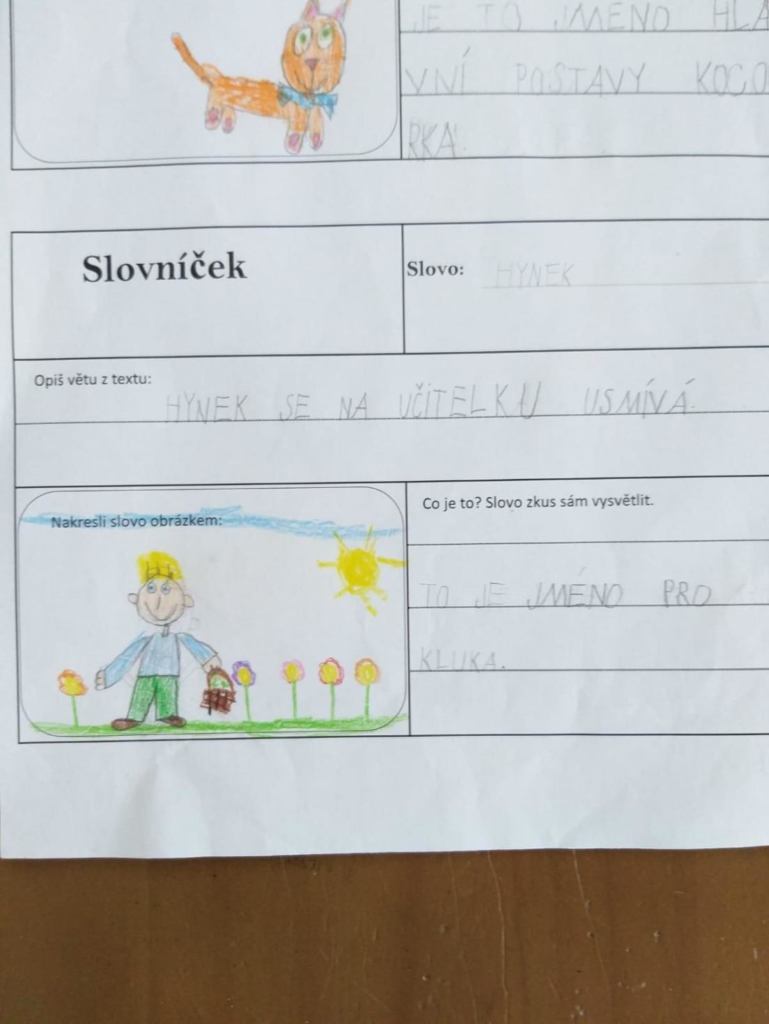 JE TO JMÉNO HLA
VNÍ POSTAVY KOCO
RKA.
Slovníček
Slovo: HYNEK
Opiš větu z textu:
HYNEK SE NA UČITELKU USMÍVÁ.
Nakresli slovo obrázkem:
Co je to? Slovo zkus sám vysvětlit.
TO JE JMÉNO PRO
KLUKA.